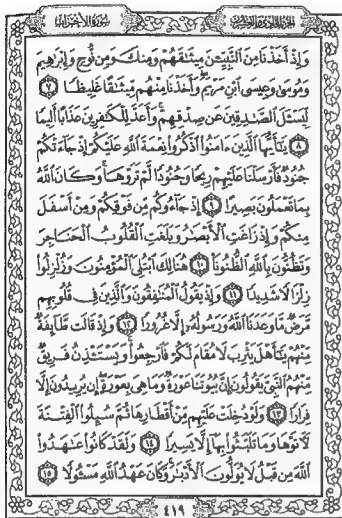 سورة الأحزاب
الجزء الحادي والعشرون
وَإِذْ أَخَذْنَا مِنَ ٱلنَّبِيِّـۧنَ مِيثَـٰقَهُمْ وَمِنكَ وَمِن نُّوحٍ وَإِبْرَٰهِيمَ
وَمُوسَىٰ وَعِيسَى ٱبْنِ مَرْيَمَ ۖ وَأَخَذْنَا مِنْهُم مِّيثَـٰقًا غَلِيظًا ٧
لِّيَسْـَٔلَ ٱلصَّـٰدِقِينَ عَن صِدْقِهِمْ ۚ وَأَعَدَّ لِلْكَـٰفِرِينَ عَذَابًا أَلِيمًا
٨ يَـٰٓأَيُّهَا ٱلَّذِينَ ءَامَنُوا۟ ٱذْكُرُوا۟ نِعْمَةَ ٱللَّهِ عَلَيْكُمْ إِذْ جَآءَتْكُمْ
جُنُودٌ فَأَرْسَلْنَا عَلَيْهِمْ رِيحًا وَجُنُودًا لَّمْ تَرَوْهَا ۚ وَكَانَ ٱللَّهُ
بِمَا تَعْمَلُونَ بَصِيرًا ٩ إِذْ جَآءُوكُم مِّن فَوْقِكُمْ وَمِنْ أَسْفَلَ
مِنكُمْ وَإِذْ زَاغَتِ ٱلْأَبْصَـٰرُ وَبَلَغَتِ ٱلْقُلُوبُ ٱلْحَنَاجِرَ
وَتَظُنُّونَ بِٱللَّهِ ٱلظُّنُونَا۠ ١٠ هُنَالِكَ ٱبْتُلِىَ ٱلْمُؤْمِنُونَ وَزُلْزِلُوا۟
زِلْزَالًا شَدِيدًا ١١ وَإِذْ يَقُولُ ٱلْمُنَـٰفِقُونَ وَٱلَّذِينَ فِى قُلُوبِهِم
مَّرَضٌ مَّا وَعَدَنَا ٱللَّهُ وَرَسُولُهُۥٓ إِلَّا غُرُورًا ١٢ وَإِذْ قَالَت طَّآئِفَةٌ
مِّنْهُمْ يَـٰٓأَهْلَ يَثْرِبَ لَا مُقَامَ لَكُمْ فَٱرْجِعُوا۟ ۚ وَيَسْتَـْٔذِنُ فَرِيقٌ
مِّنْهُمُ ٱلنَّبِىَّ يَقُولُونَ إِنَّ بُيُوتَنَا عَوْرَةٌ وَمَا هِىَ بِعَوْرَةٍ ۖ إِن يُرِيدُونَ إِلَّا
فِرَارًا ١٣ وَلَوْ دُخِلَتْ عَلَيْهِم مِّنْ أَقْطَارِهَا ثُمَّ سُئِلُوا۟ ٱلْفِتْنَةَ
لَـَٔاتَوْهَا وَمَا تَلَبَّثُوا۟ بِهَآ إِلَّا يَسِيرًا ١٤ وَلَقَدْ كَانُوا۟ عَـٰهَدُوا۟
ٱللَّهَ مِن قَبْلُ لَا يُوَلُّونَ ٱلْأَدْبَـٰرَ ۚ وَكَانَ عَهْدُ ٱللَّهِ مَسْـُٔولًا ١٥
٤١٩